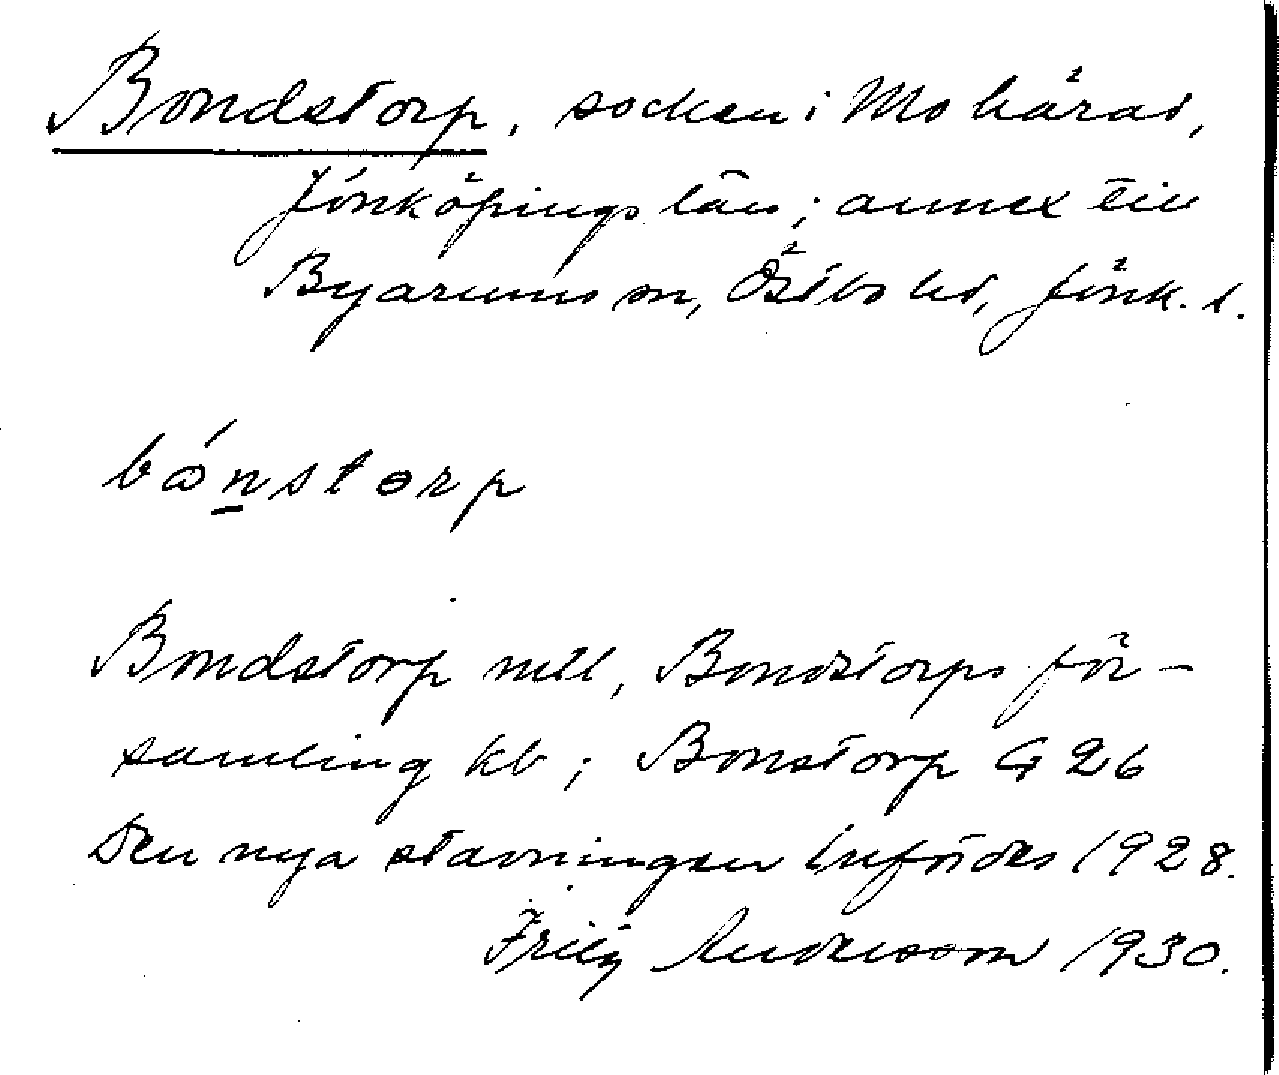 Bondstorp, socken i Mo härad,
Jönköpings län; annex till
Byarums sn, Östbo hd, Jönk. l.
bónstorp
Bondstorp mtl, Bondstorps för-
samling kb; Bonstorp G 26
Den nya stavningen infördes 1928.
Fritz Andersson 1930.